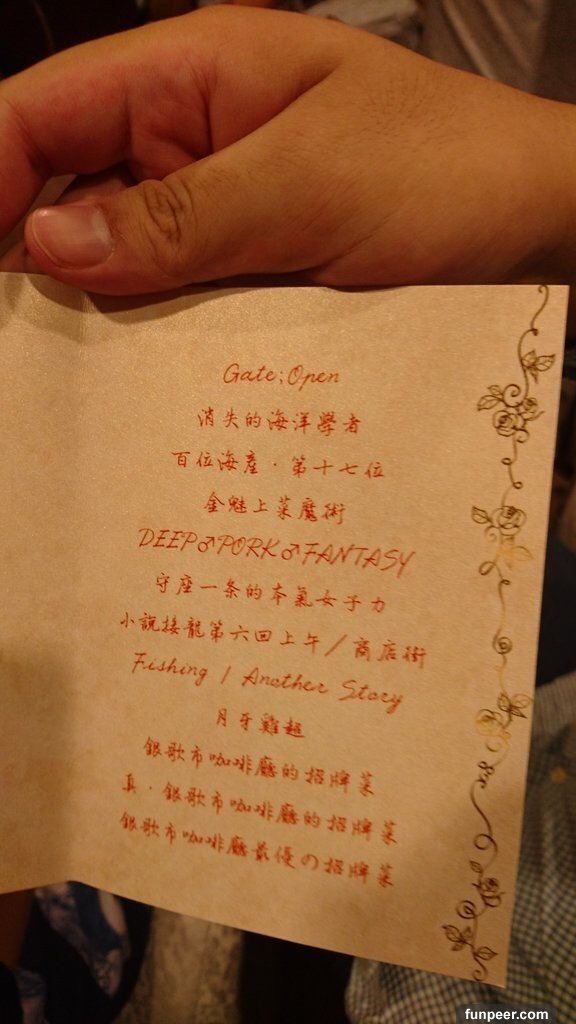 Gate;Open
消失的海洋學者
百位海產・第十七位
金魅上菜魔術
DEEP♂PORK♂FANTASY
守座一条的本氣女子力
小說接龍第六回上午/商店街
Fishing / Another Story
月牙雞翅
銀歌市咖啡廳的招牌菜
真・銀歌市咖啡廳的招牌菜
銀歌市咖啡廳最優の招牌菜
funpeer.com